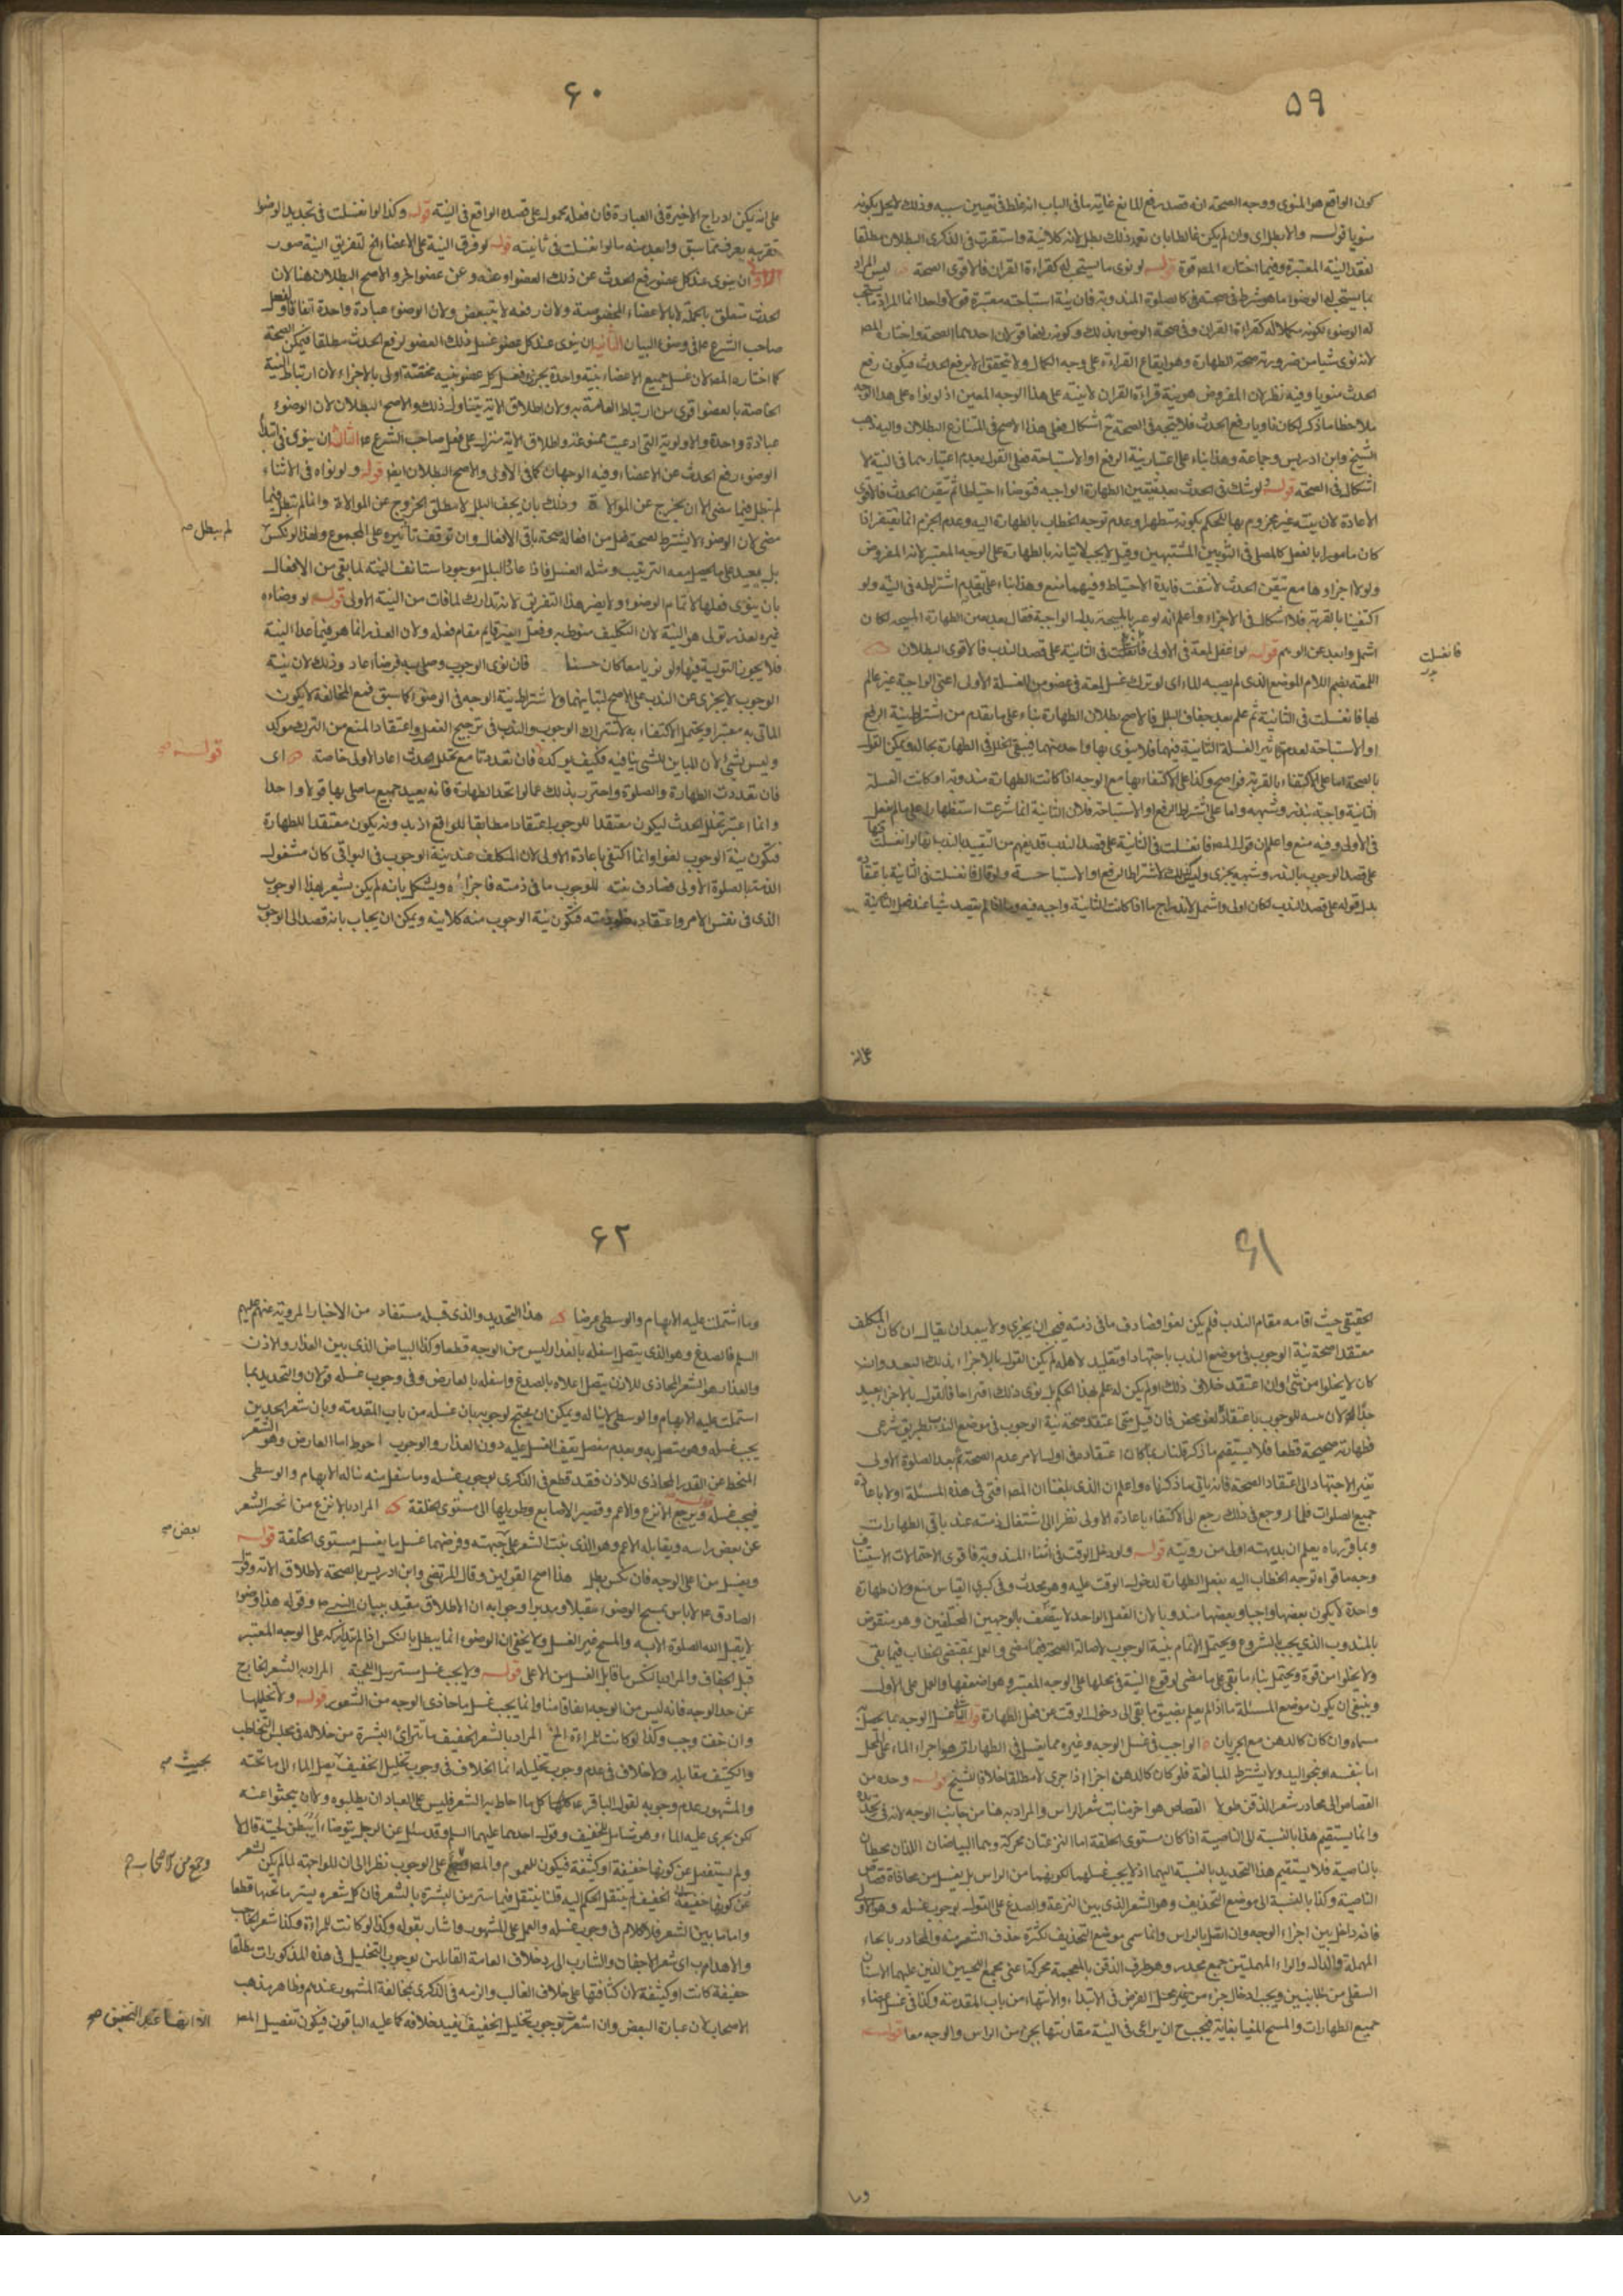 ٥٩
كون الواقع هو المنوى ووجه الصحة انه قصد رفع المانع غاية ما فى الباب انه غلط فى تعيين سببه وذلك لا يخل بكونه
منويا قوله والا بطل اى وان لم يكن غالطا بان تعمد ذلك بطل لانه كلا نية واستقرب فى الذكرى البطلان مطلقا
لفقد النية المعتبرة وفيما اختاره المص قوة قوله لو نوى ما يستحب له كقراءة القران فالاقوى الصحة ليس المراد
بما يستحب له الوضوء ما هو شرط فى صحته كالصلوة المندوبة فان نية استباحته معتبرة قولا واحدا انما المراد ما يستحب
له الوضوء لكونه مكملا له كقراءة القران وفى صحة الوضوء بذلك وكونه رافعا قولان احدهما الصحة واختاره المص
لانه نوى شيئا من ضرورته صحة الطهارة وهو ايقاع القراءة على وجه الكمال ولا يتحقق الا برفع الحدث فيكون رفع
الحدث منويا وفيه نظر لان المفروض هو نية قراءة القران لا نيته على هذا الوجه المعين اذ لو نواه على هذا الوجه
ملاحظا ما ذكر لكان ناويا رفع الحدث فلا يتجه فى الصحة ح اشكال فعلى هذا الاصح فى المتنازع البطلان واليه ذهب
الشيخ وابن ادريس وجماعة وهذا بناء على اعتبار نية الرفع او الاستباحة فعلى القول بعدم اعتبارهما فى النية لا
اشكال فى الصحة قوله لو شك فى الحدث بعد تيقن الطهارة الواجبة فتوضاء احتياطا ثم تيقن الحدث فالاقوى
الاعادة لان نيته غير مجزوم بها للحكم بكونه متطهرا وعدم توجه الخطاب بالطهارة اليه وعدم الجزم انما يغتفر اذا
كان مامورا بالفعل كالمصلى فى الثوبين المشتبهين وقيل لا يجب لاتيانه بالطهارة على الوجه المعتبر لانه المفروض
ولو لا اجزاؤها مع تيقن الحدث لانتفت فايدة الاحتياط وفيهما منع وهذا بناء على تقديم اشتراطه فى النية ولو
اكتفينا بالقربة فلا اشكال فى الاجزاء واعلم انه لو عبر بالمبيحة بدل الواجبة فقال بعد تيقن الطهارة المبيحة لكان
اشمل وابعد عن الوهم قوله لو اغفل لمعة فى الاولى فانغسلت فى الثانية على قصد الندب فالاقوى البطلان
اللمعة بضم اللام الموضع الذى لم يصبه الماء اى لو ترك غسل لمعة فى عضو من الغسلة الاولى اعنى الواجبة غير عالم
بها فانغسلت فى الثانية ثم علم بعد جفاف البلل فالاصح بطلان الطهارة بناء على ما تقدم من اشتراط نية الرفع
او الاستباحة لعدم تاثير الغسلة الثانية فيهما فلا ينوى بها واحد منهما فيبقى الخلل فى الطهارة بحاله ويمكن القول
بالصحة اما على الاكتفاء بالقربة فواضح وكذا على الاكتفاء بها مع الوجه اذا كانت الطهارة مندوبة او كانت الغسلة
الثانية واجبة بنذر وشبهه واما على اشتراط الرفع او الاستباحة فلان الثانية انما شرعت استظهارا على ما لم يغسل
فى الاولى وفيه منع واعلم ان قول المص فانغسلت فى الثانية على قصد الندب قد يفهم من التقييد بالندب انها لو انغسلت فيها
على قصد الوجوب بالنذر وشبهه يجزى وليس كذلك لاشتراط الرفع او الاستباحة ولو قال فانغسلت فى الثانية باعتقاده
بدل قوله على قصد الندب لكان اولى واشمل لاندراج ما اذا كانت الثانية واجبة فيه وما اذا لم يقصد شيئا عند فعل الثانية
فانغسلت
على انه
٦٠
على انه يمكن ادراج الاخيرة فى العبارة فان فعله محمول على قصده الواقع فى النية قوله وكذا لو انغسلت فى تجديد الوضوء
تقريبه يعرف مما سبق وابعد منه ما لو انغسلت فى ثانيته قوله لو فرق النية على الاعضاء الخ لتفريق النية صور
الاولى ان ينوى عند كل عضو رفع الحدث عن ذلك العضو او عنه وعن عضو اخر والاصح البطلان هنا لان
الحدث متعلق بالجملة لا بالاعضاء المخصوصة ولان رفعه لا يتبعض ولان الوضوء عبادة واحدة اتفاقا ولفعل
صاحب الشرع ع فى وضوء البيان الثانية ان ينوى عند كل عضو غسل ذلك العضو لرفع الحدث مطلقا فيمكن الصحة
كما اختاره المص لان غسل جميع الاعضاء بنية واحدة يجزى فغسل كل عضو بنية مختصة اولى بالاجزاء لان ارتباط النية
الخاصة بالعضو اقوى من ارتباط العامة به ولان اطلاق الاية يتناول ذلك والاصح البطلان لان الوضوء
عبادة واحدة والاولوية التى ادعيت ممنوعة واطلاق الاية منزل على فعل صاحب الشرع ع الثالثة ان ينوى فى ابتداء
الوضوء رفع الحدث عن الاعضاء وفيه الوجهان كما فى الاولى والاصح البطلان ايضا قوله ولو نواه فى الاثناء
لم تبطل فيما مضى الا ان يخرج عن الموالاة وذلك بان يجف البلل لا مطلق الخروج عن الموالاة وانما لم تبطل فيما
مضى لان الوضوء لا يشترط لصحة فعل من افعاله صحة باقى الافعال وان توقف تاثيره على المجموع ولهذا لو نكس
بل يعيد على ما يحصل معه الترتيب ومثله الغسل فاذا عاد والبلل موجود استانف النية لما بقى من الافعال
بان ينوى فعلها لاتمام الوضوء ولا يضر هذا التفريق لانه تدارك لما فات من النية الاولى قوله لو وضاءه
غيره لعذر تولى هو النية لان التكليف منوط به وفعل الغير قايم مقام فعله ولان العذر انما هو فيما عدا النية
فلا يجوز التولية فيها ولو نويا معا كان حسنا فان نوى الوجوب وصلى به فرضا اعاد وذلك لان نية
الوجوب لا يجزى عن الندب على الاصح لتباينهما ولاشتراط نية الوجه فى الوضوء كما سبق فمع المخالفة لا يكون
الماتى به معتبرا ويحتمل الاكتفاء به لاشتراك الوجوب والندب فى ترجيح الفعل واعتقاد المنع من الترك موكد
وليس بشئ لان المباين للشئ ينافيه فكيف يوكده فان تعددتا مع تخلل الحدث اعاد الاولى خاصة اى
فان تعددت الطهارة والصلوة واحترز بذلك عما لو اتحد الطهارة فانه يعيد جميع ما صلى بها قولا واحدا
وانما اعتبر تخلل الحدث ليكون معتقدا للوجوب اعتقادا مطابقا للواقع اذ بدونه يكون معتقدا للطهارة
فيكون نية الوجوب لغوا وانما اكتفى باعادة الاولى لان المكلف عند نية الوجوب فى البواقى كان مشغول
الذمة بالصلوة الاولى فصادف نيته للوجوب ما فى ذمته فاجزاءه ويشكل بانه لم يكن يشعر بهذا الوجوب
الذى فى نفس الامر واعتقاده ذمته فتكون نية الوجوب منه كلا نية ويمكن ان يجاب بانه قصد الى الوجوب
لم يبطل صح
قوله صح
٦١
الحقيقى حيث اقامه مقام الندب فلم يكن لغوا فصادف ما فى ذمته فيجب ان يجزى ولا يبعد ان يقال ان كان المكلف
معتقدا صحة نية الوجوب فى موضع الندب باجتهاد او تقليد لاهله لم يكن القول بالاجزاء بذلك البعيد وان
كان لا يخلوا من شئ وان اعتقد خلاف ذلك او لم يكن له علم بهذا الحكم بل نوى ذلك اقتراحا فالقول بالاجزاء بعيد
جدا لان للوجوب باعتقاده لغو محض فان قيل متى اعتقد صحة نية الوجوب فى موضع الندب بطريق شرعى
فطهارته صحيحة قطعا فلا يستقيم ما ذكر قلنا ربما كان اعتقاده فى اول الامر عدم الصحة ثم بعد الصلوة الاولى
تغير الاجتهاد الى اعتقاد الصحة فانه ياتى ما ذكرناه واعلم ان الذى بلغنا ان المص افتى فى هذه المسئلة اولا باعادة
جميع الصلوات فلما روجع فى ذلك رجع الى الاكتفاء باعادة الاولى نظرا الى اشتغال ذمته عند باقى الطهارات
وبما قررناه يعلم ان بديهته اولى من رويته قوله ولو دخل الوقت فى اثناء المندوبة فاقوى الاحتمالات الاستيناف
وجه ما قواه توجه الخطاب اليه بفعل الطهارة لدخول الوقت عليه وهو محدث وفى كبرى القياس منع ولان طهارة
واحدة لا يكون بعضها واجبا وبعضها مندوبا لان الفعل الواحد لا يتصف بالوجهين المختلفين وهو منقوض
بالمندوب الذى يجب بالشروع ويحتمل الاتمام بنية الوجوب لاصالة الصحة فيما مضى والعمل بمقتضى الخطاب فيما بقى
ولا يخلوا من قوة ويحتمل بناء ما بقى على ما مضى لوقوع النية فى محلها على الوجه المعتبر وهو اضعفها والعمل على الاول
وينبغى ان يكون موضع المسئلة ما اذا لم يعلم بضيق ما بقى الى دخول الوقت عن فعل الطهارة قوله الثانى غسل الوجه بما يحصل
مسماه وان كان كالدهن مع الجريان الواجب فى غسل الوجه وغيره مما يغسل فى الطهارة هو اجراء الماء على المحل
اما بنفسه او نحو اليد ولا يشترط المبالغة فلو كان كالدهن اجزاء اذا جرى لا مطلقا خلافا للشيخ قوله وحده من
القصاص الى محادر شعر الذقن طولا القصاص هو اخر منابت شعر الراس والمراد به هنا من جانب الوجه لانه فى تحديده
وانما يستقيم هذا بالنسبة الى الناصية اذا كان مستوى الخلقة اما النزعتان محركة وهما البياضان اللذان يحيطان
بالناصية فلا يستقيم هذا التحديد بالنسبة اليهما اذ لا يجب غسلهما لكونهما من الراس بل يغسل من محاذاة قصاص
الناصية وكذا بالنسبة الى موضع التحذيف وهو الشعر الذى بين النزعة والصدغ على القول بوجوب غسله وهو الاولى
فانه داخل بين اجزاء الوجه وان اتصل بالراس وانما سمى موضع التحذيف لكثرة حذف الشعر منه والمحادر بالحاء
المهملة والدال والراء المهملتين جمع محدر وهو طرف الذقن بالمعجمة محركة اعنى مجمع اللحيين الذين عليهما الاسنان
السفلى من الجانبين ويجب ادخال جزء من غير محل الفرض فى الابتداء والانتهاء من باب المقدمة وكذا فى غسل اعضاء
جميع الطهارات والمسح المغيا بغاية فيجب ح ان يراعى فى النية مقارنتها بجزء من الراس والوجه معا قوله
وما
٦٢
وما اشتملت عليه الابهام والوسطى عرضا هذا التحديد والذى قبله مستفاد من الاخبار المروية عنهم عليهم
السلم فالصدغ وهو الذى يتصل اسفله بالعذار ليس من الوجه قطعا وكذا البياض الذى بين العذار والاذن
والعذار هو الشعر المحاذى للاذن يتصل اعلاه بالصدغ واسفله بالعارض وفى وجوب غسله قولان والتحديد بما
اشتملت عليه الابهام والوسطى لا يناله ويمكن ان يحتج لوجوبه بان غسله من باب المقدمة وبان شعر الخدين
يجب غسله وهو متصل به وبعدم مفصل يقف الغسل عليه دون العذار والوجوب احوط اما العارض وهو الشعر
المنحط عن القدر المحاذى للاذن فقد قطع فى الذكرى بوجوب غسله وما سفل منه ناله الابهام والوسطى
فيجب غسله قوله ويرجع الانزع والاغم وقصير الاصابع وطويلها الى مستوى الخلقة المراد بالانزع من انحسر الشعر
عن بعض راسه ويقابله الاغم وهو الذى ينبت الشعر على جبهته وفرضهما غسل ما يغسل مستوى الخلقة قوله
ويغسل من اعلى الوجه فان نكس بطل هذا اصح القولين وقال المرتضى وابن ادريس بالصحة لاطلاق الاية وقول
الصادق ع لا باس بمسح الوضوء مقبلا ومدبرا وجوابه ان الاطلاق مقيد ببيان النبى ص وقوله هذا وضوء
لا يقبل الله الصلوة الا به والمسح غير الغسل ولا يخفى ان الوضوء انما يبطل بالنكس اذا لم يتداركه على الوجه المعتبر
قبل الجفاف والمراد بالنكس ما قابل الغسل من الاعلى قوله ولا يجب غسل مسترسل اللحية المراد به الشعر الخارج
عن حد الوجه فانه ليس من الوجه اتفاقا منا وانما يجب غسل ما حاذى الوجه من الشعور قوله ولا تخليلها
وان خفت وجب وكذا لو كانت للمراءة الخ المراد بالشعر الخفيف ما تتراءى البشرة من خلاله فى مجلس التخاطب
والكثيف مقابله ولا خلاف فى عدم وجوب تخليله انما الخلاف فى وجوب تخليل الخفيف يصل الماء الى ما تحته
والمشهور عدم وجوبه لقول الباقر ع كل ما احاط به الشعر فليس على العباد ان يطلبوه ولا ان يبحثوا عنه
لكن يجرى عليه الماء وهو شامل للخفيف وقول احدهما عليهما السلم وقد سئل عن الرجل يتوضاء ايبطن لحيته قال لا
ولم يستفصل عن كونها خفيفة او كثيفة فيكون للعموم والمص على الوجوب نظرا الى ان المواجهة لما لم يكن لشعر
عن كونها خفيفة الخفيف لم ينتقل الحكم اليه قلنا ينتقل فيما ستر من البشرة بالشعر فان كل شعرة يستر ما تحتها قطعا
واما ما بين الشعر فلا كلام فى وجوب غسله والعمل على المشهور واشار بقوله وكذا لو كانت للمراءة وكذا شعر الحاجب
والاهداب اى شعر الاجفان والشارب الى رد خلاف العامة القايلين بوجوب التخليل فى هذه المذكورات مطلقا
خفيفة كانت او كثيفة لان كثافتها على خلاف الغالب والزمه فى الذكرى بمخالفة المشهور عندهم وظاهر مذهب
الاصحاب لان عبارة البعض وان اشعرت بوجوب تخليل الخفيف يفيد خلافه كما عليه الباقون فيكون تفصيل المص
بعض صح
بحيث صح
وجمع من الاصحاب
الا انها عند التحقيق صح